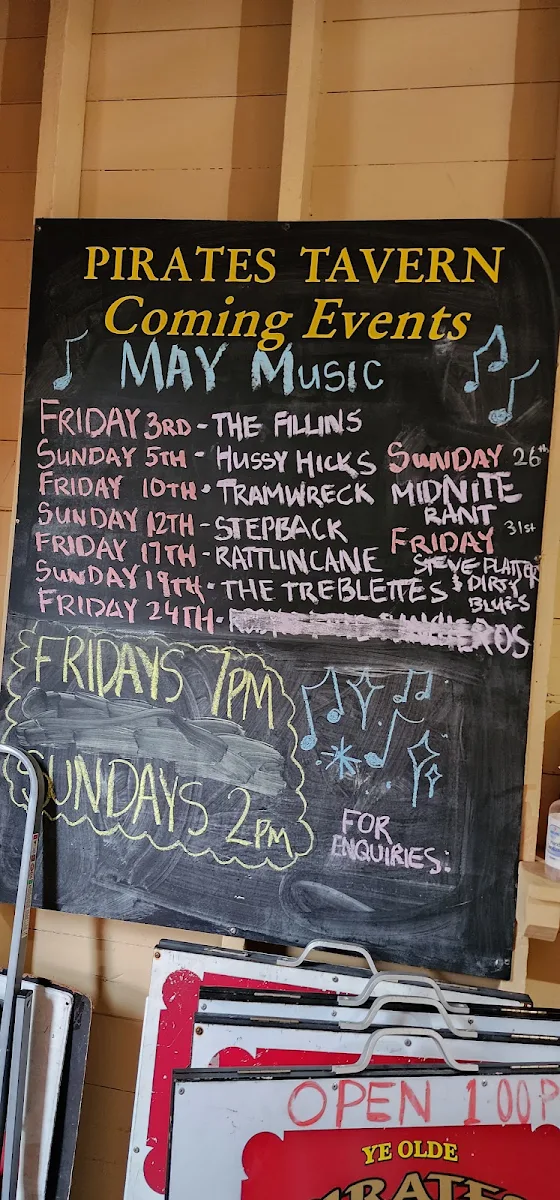 PIRATES TAVERN
Coming Events
MAY MUSIC
FRIDAY 3RD - THE FILLINS
SUNDAY 5TH - HUSSY HICKS
FRIDAY 10TH - TRAMWRECK
SUNDAY 12TH - STEPBACK
FRIDAY 17TH - RATTLINCANE
SUNDAY 19TH - THE TREBLETTES
FRIDAY 24TH -
SUNDAY 26th
MIDNITE
RANT
FRIDAY 31st
STEVE FLATTER
& DIRTY
BLUES
FRIDAYS 7PM
SUNDAYS 2PM
FOR
ENQUIRIES:
OPEN 1 00 P
YE OLDE